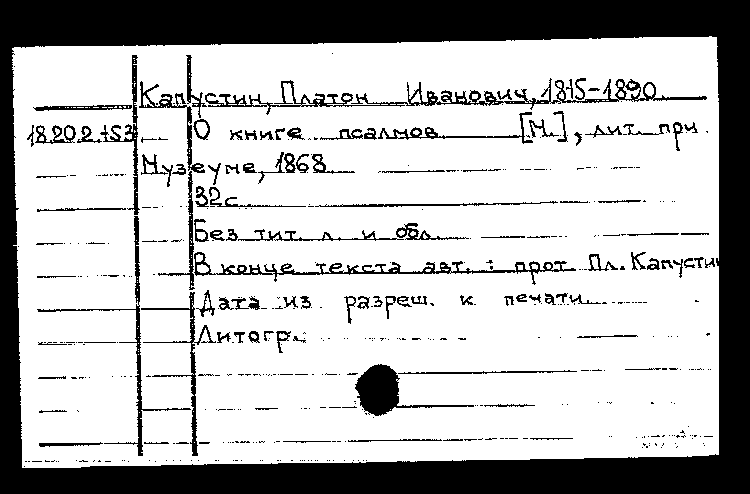 Капустин, Платон Иванович, 1815-1890.
18.202.153. О книге псалмов [М.], лит. при
Музеуме, 1868
32с.
Без тит. л. и обл.
В конце текста авт.: прот. Пл. Капустин
Дата из разреш. к печати.
Литогр.